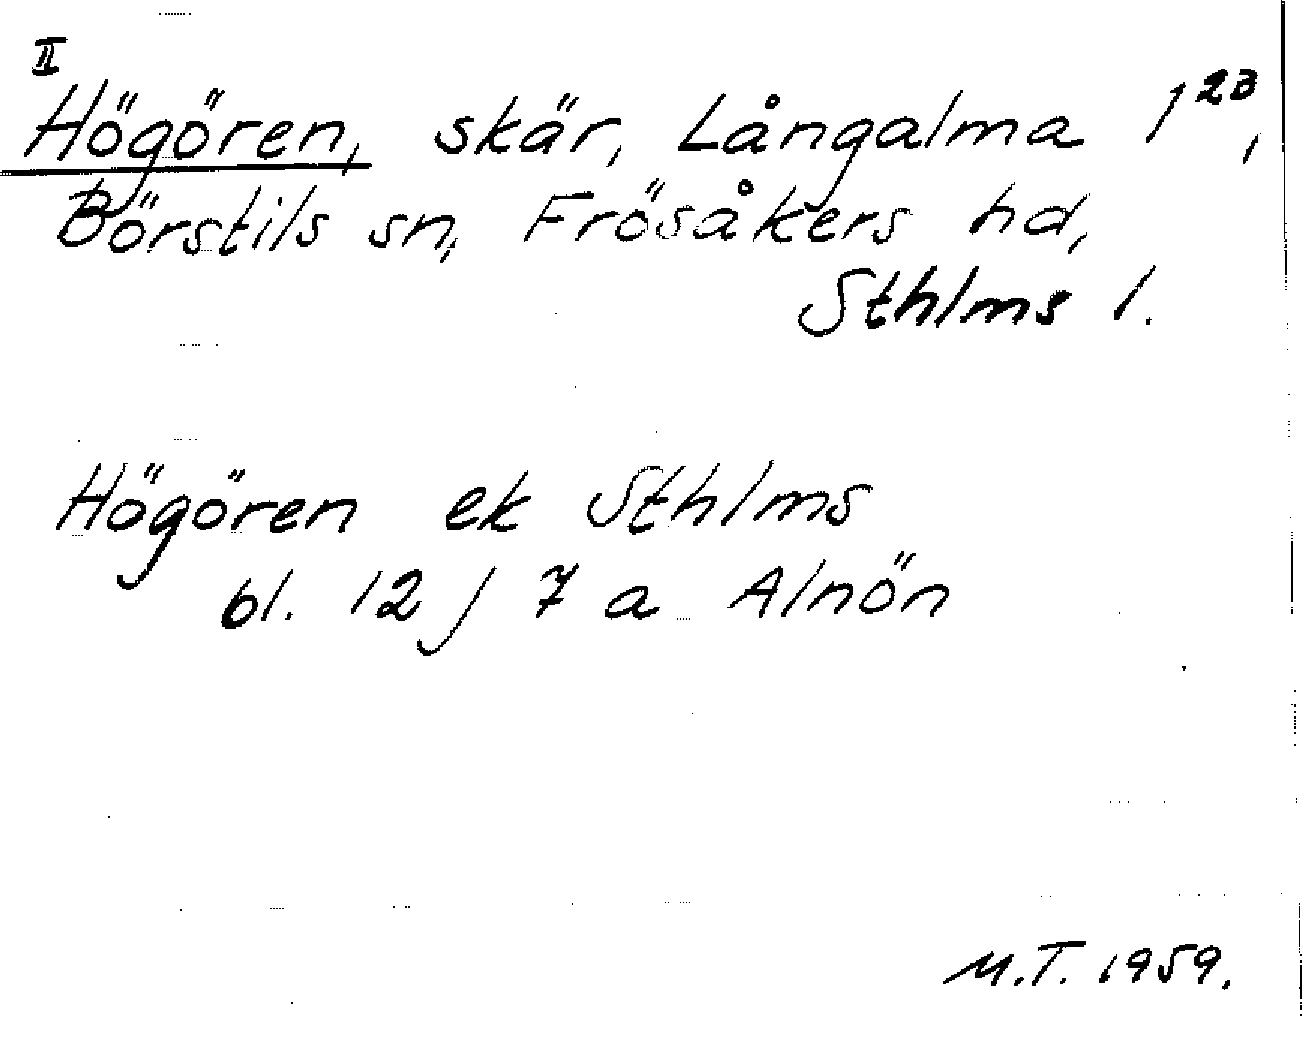 II
Högören, skär, Långalma 1²³,
Börstils sn, Frösåkers hd,
Sthlms l.
Högören ek Sthlms
bl. 12 j 7 a Alnön
M.T. 1959.